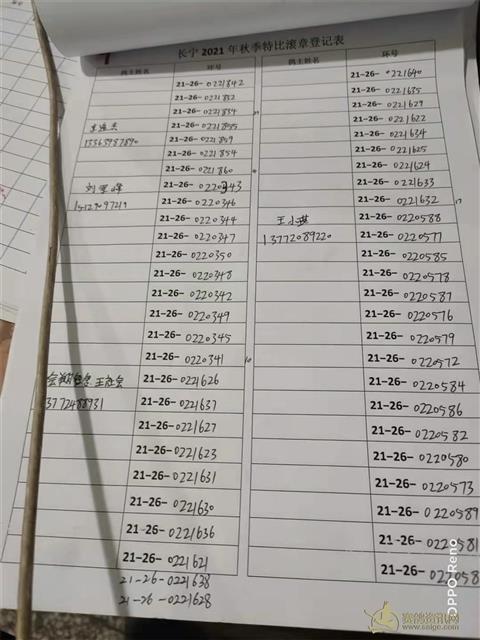 长宁 2021 年秋季特比滚章登记表
鸽主姓名 环号
21-26-0221842
21-26-0221852
21-26-0221854
21-26-0221859
13363987890
21-26-0221854
21-26-0221860
刘
21-26-0220343
15129097219
21-26-0220346
21-26-0220344
21-26-0220347
21-26-0220350
21-26-0220348
21-26-0220342
21-26-0220349
21-26-0220345
21-26-0220341
10
21-26-0221626
13772488931
21-26-0221637
21-26-0221627
21-26-0221623
21-26-0221631
21-26-0221630
21-26-0221636
21-26-0221621
21-26-0221638
21-26-0221628
鸽主姓名 环号
21-26-0221640
21-26-0221635
21-26-0221629
21-26-0221622
21-26-0221634
21-26-0221625
21-26-0221624
21-26-0221633
21-26-0221632
17
王小
21-26-0220588
13772089220
21-26-0220577
21-26-0220585
21-26-0220578
21-26-0220587
21-26-0220576
21-26-0220579
21-26-0220572
21-26-0220584
21-26-0220586
21-26-0220582
21-26-0220580
21-26-0220573
21-26-0220589
21-26-0220581
21-26-022058
OPPO Reno
赛鸽资讯网
www.saige.com